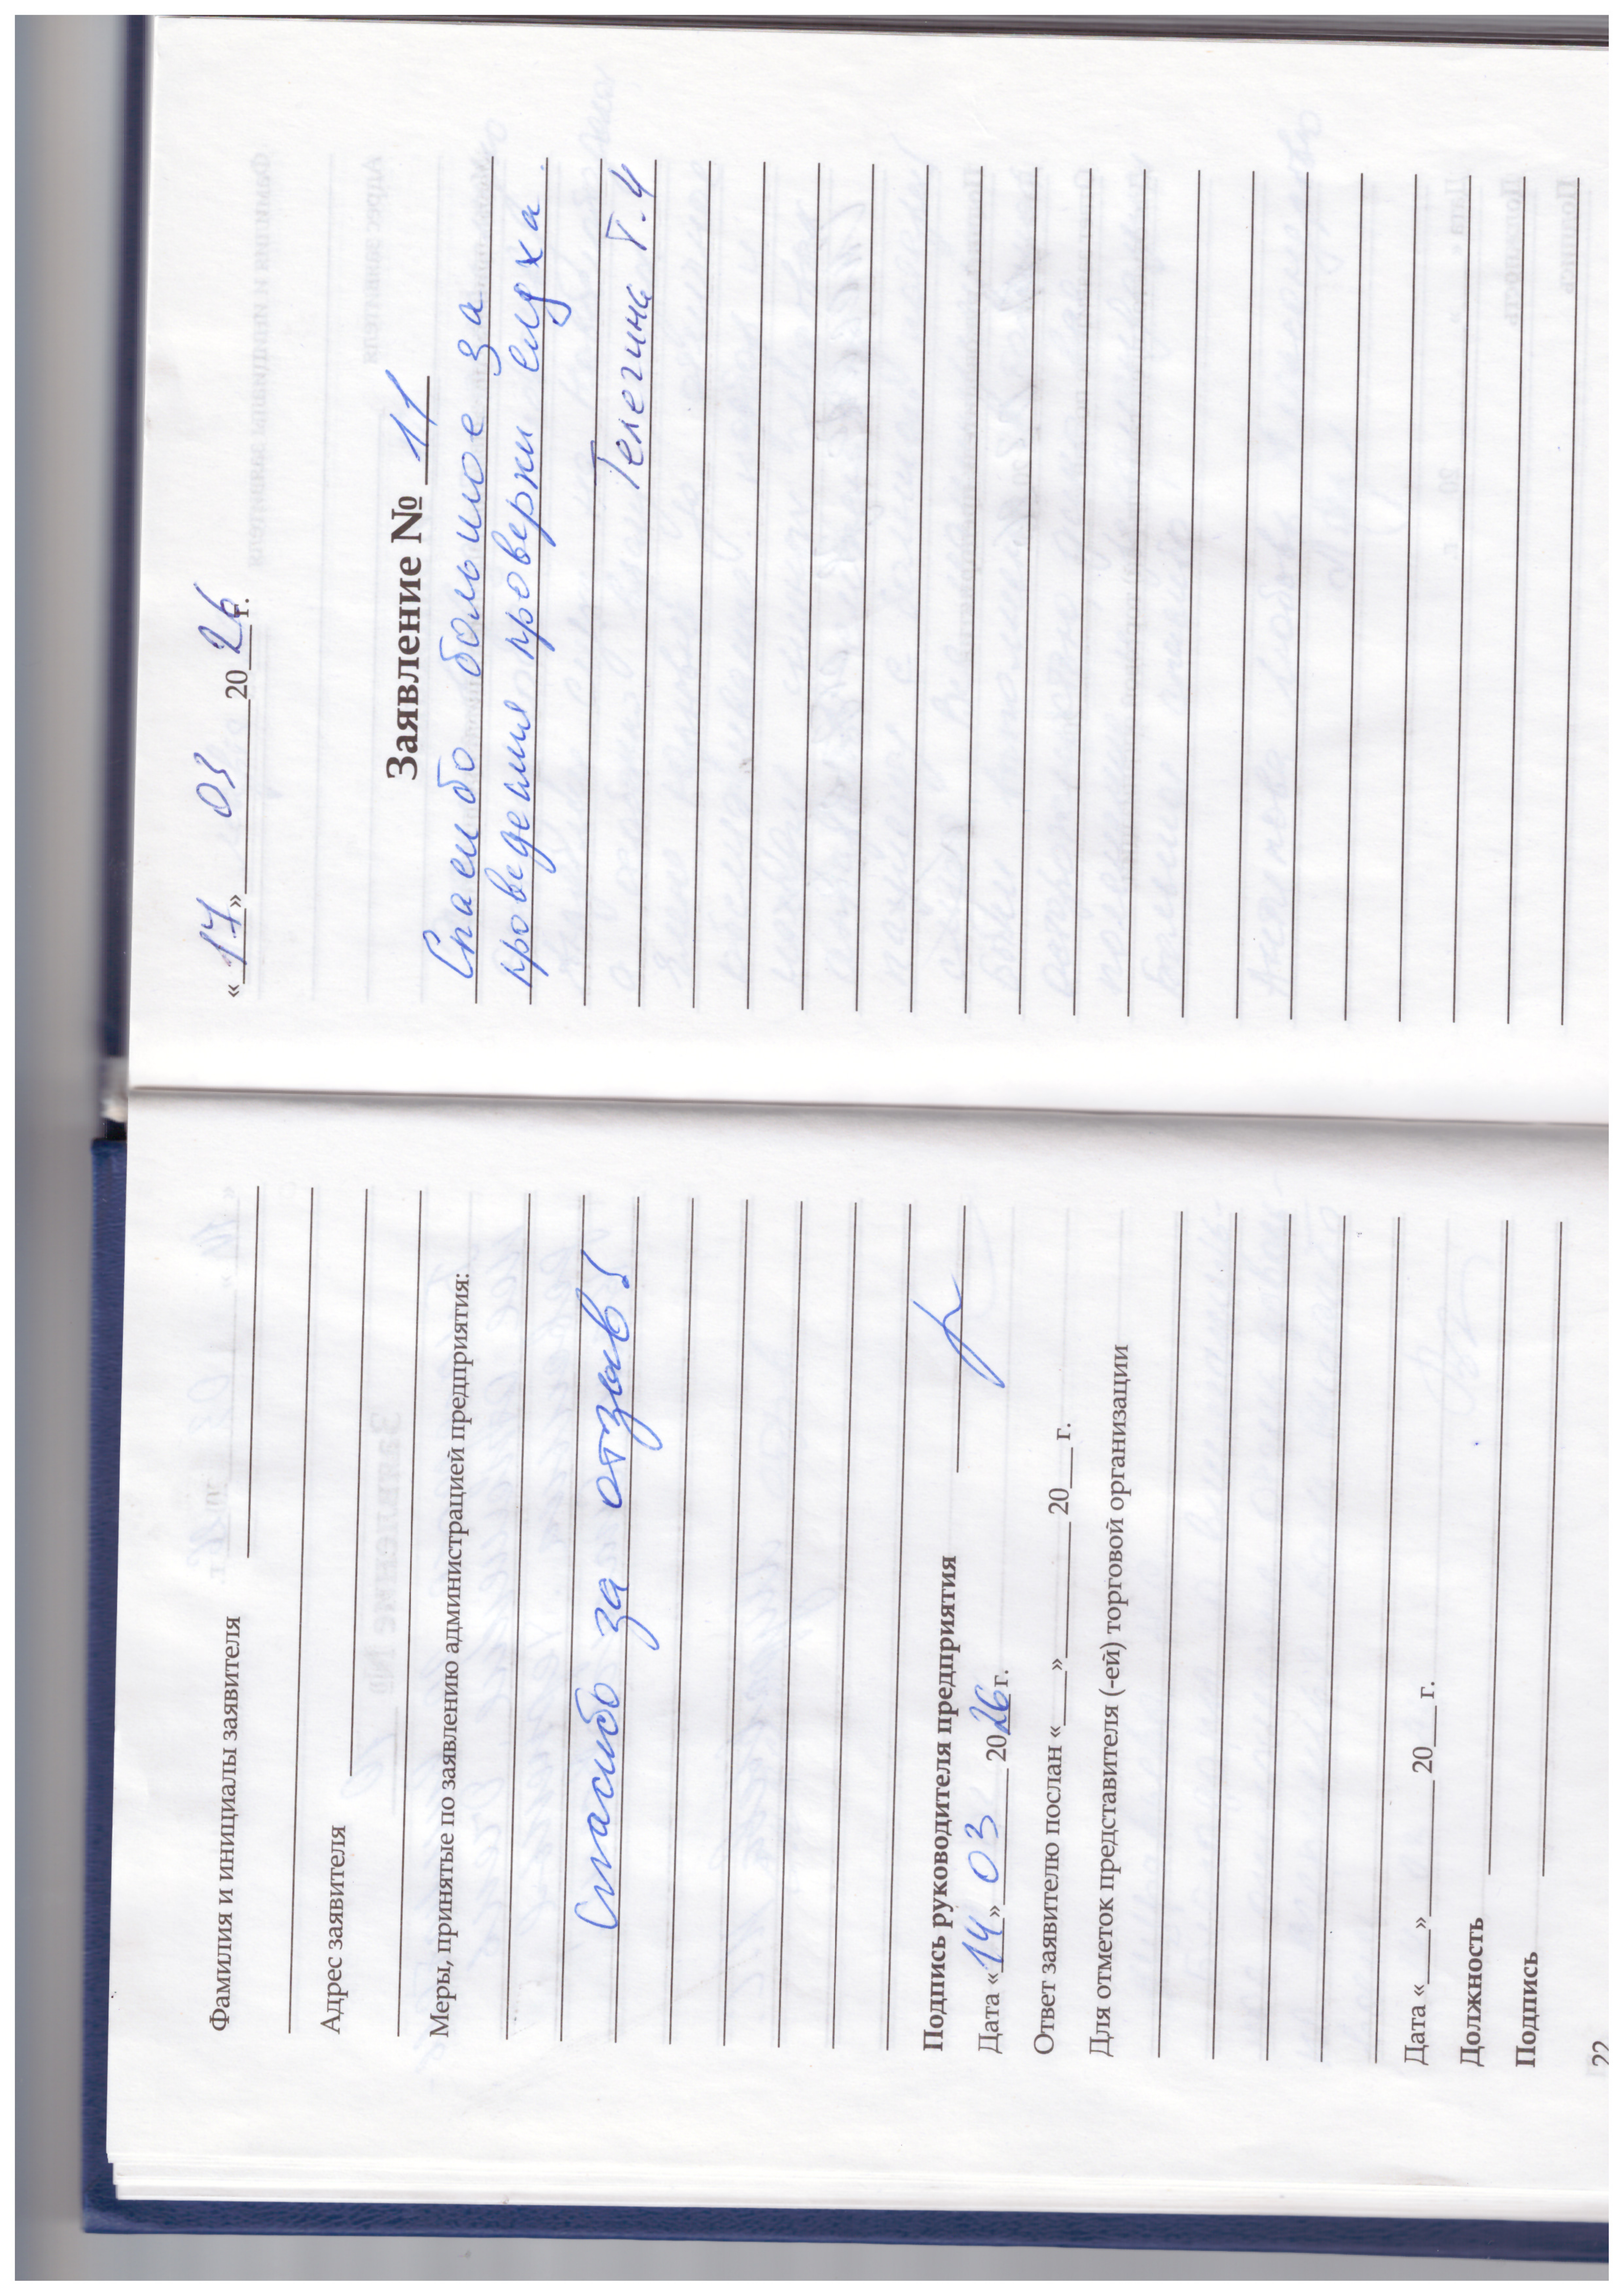 Фамилия и инициалы заявителя
Адрес заявителя
Меры, принятые по заявлению администрацией предприятия:
Спасибо за отзыв!
Подпись руководителя предприятия
Дата «14» 03 2026 г.
Ответ заявителю послан «___» ______ 20___ г.
Для отметок представителя (-ей) торговой организации
Дата «___» ______ 20___ г.
Должность
Подпись
22
«17» 03 2026 г.
Заявление № 11
Спасибо большое за
проведения проверки слуха.
Телегина Т.Ч